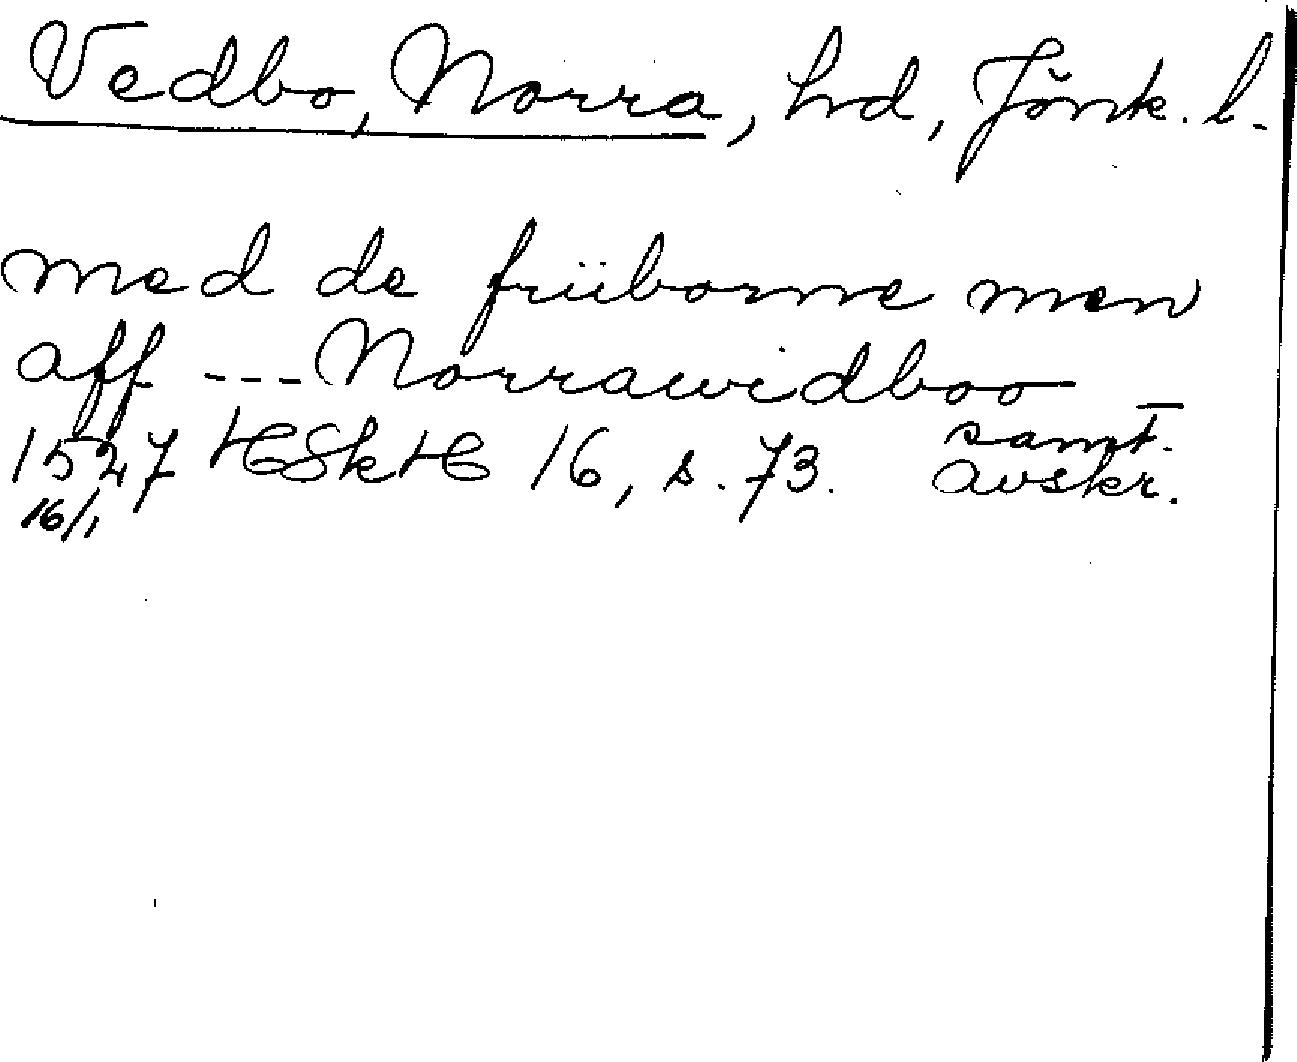 Vedbo, Norra, hd, Jönk. l.
med de friiborne men
aff --- Norrawidboo _
1527 HSkH 16, s. 73. samt.
16/1 avskr.